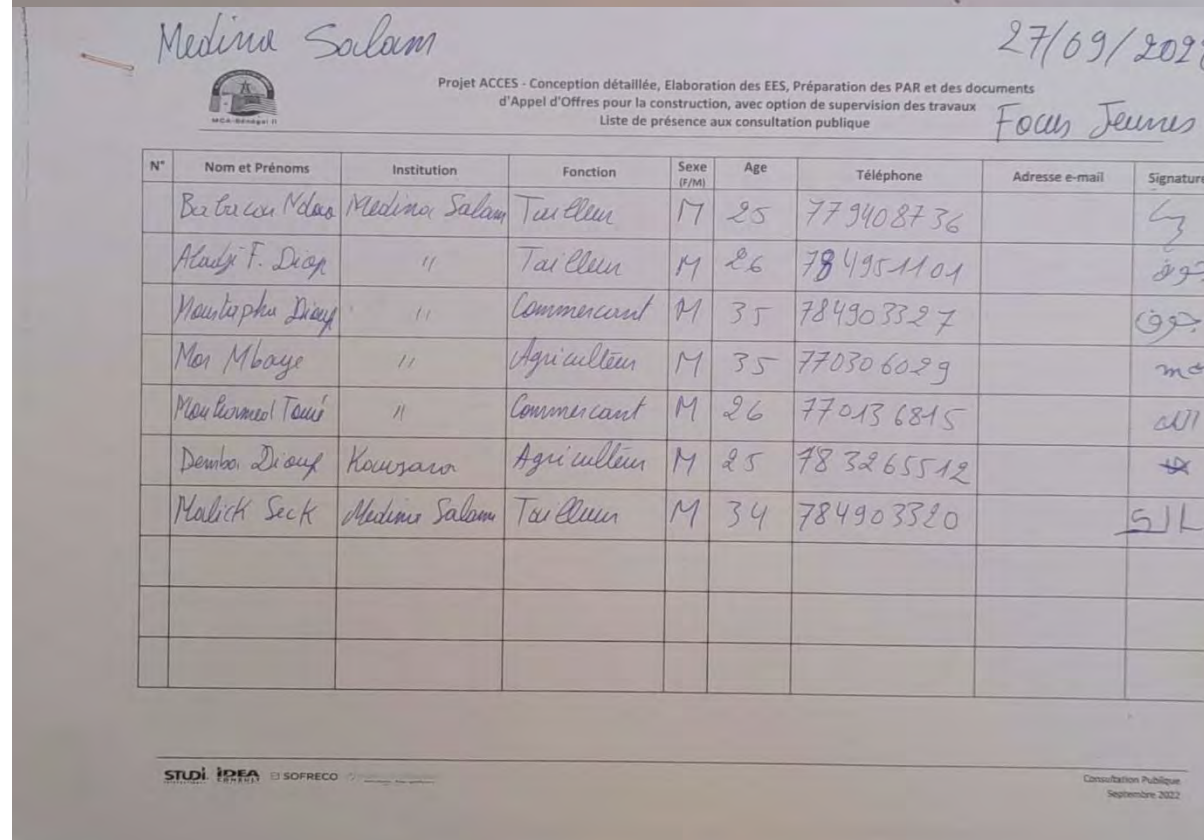 Medina Salam
27/09/202
MCA-Sénégal II
Projet ACCES - Conception détaillée, Elaboration des EES, Préparation des PAR et des documents
d'Appel d'Offres pour la construction, avec option de supervision des travaux
Liste de présence aux consultation publique
Focus Jeunes
N° Nom et Prénoms Institution Fonction Sexe (F/M) Age Téléphone Adresse e-mail Signature
Babacar Ndao Medina Salam Tailleur M 25 779408736
Aladji F. Diop " Tailleur M 26 784951101 جوف
Moustapha Diouf " Commercant M 35 784903327 جوف
Mor Mbaye " Agriculteur M 35 770306029
Mouhamed Touré " Commercant M 26 770136815
Demba Diouf Kawsara Agriculteur M 25 783265512
Malick Seck Medina Salam Tailleur M 34 784903320
STUDI IDEA CONSULT SOFRECO
Consultation Publique
Septembre 2022